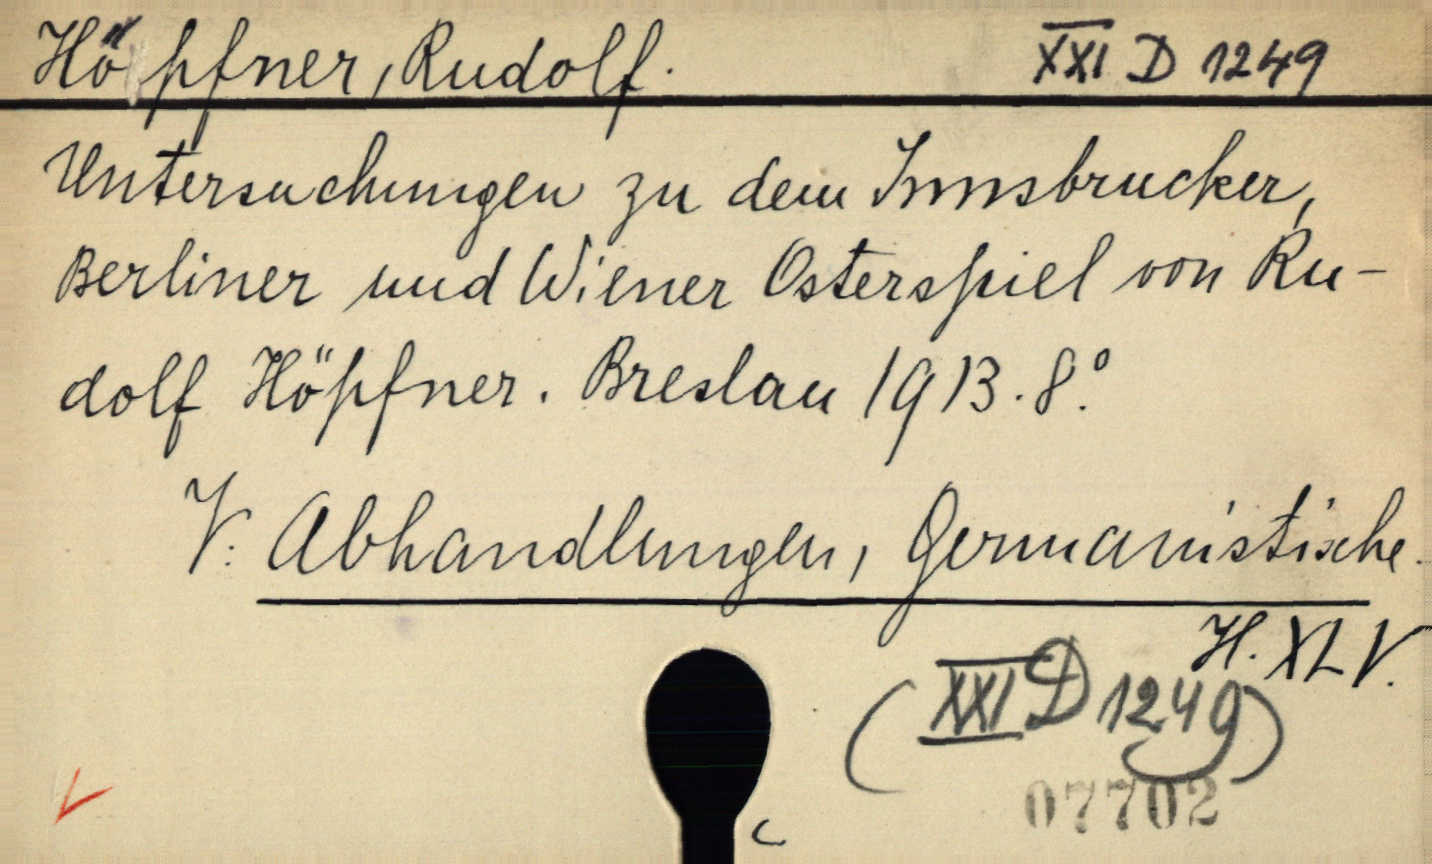 Höpfner, Rudolf. XXI D 1249
Untersuchungen zu dem Innsbrucker,
Berliner und Wiener Osterspiel von Ru-
dolf Höpfner. Breslau 1913. 8.°
V. Abhandlungen, Germanistische.
H. XLV.
(XXI D 1249)
07702
c